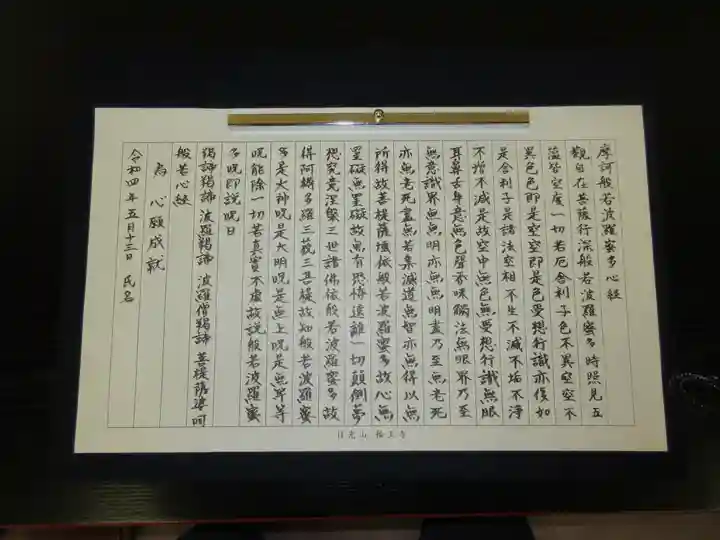 摩訶般若波羅蜜多心経
觀自在菩薩行深般若波羅蜜多時照見五
蘊皆空度一切苦厄舎利子色不異空空不
異色色即是空空即是色受想行識亦復如
是舎利子是諸法空相不生不滅不垢不浄
不増不減是故空中無色無受想行識無眼
耳鼻舌身意無色聲香味觸法無眼界乃至
無意識界無無明亦無無明盡乃至無老死
亦無老死盡無苦集滅道無智亦無得以無
所得故菩提薩埵依般若波羅蜜多故心無
罣礙無罣礙故無有恐怖遠離一切顛倒夢
想究竟涅槃三世諸佛依般若波羅蜜多故
得阿耨多羅三藐三菩提故知般若波羅蜜
多是大神呪是大明呪是無上呪是無等等
呪能除一切苦真實不虚故説般若波羅蜜
多呪即説呪曰
羯諦羯諦 波羅羯諦 波羅僧羯諦 菩提薩婆呵
般若心経
為 心願成就
令和四年五月十三日 氏名
日光山 輪王寺